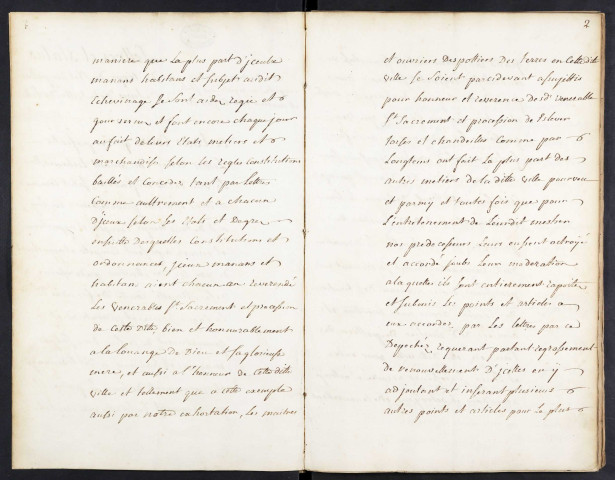 maniere que la plus part d'jceulx
manans habitans et subjet audit
Echevinage se sont aidez regie et
gouverner et font encore chaque jour
au fait de leurs Etats metiers et
marchandise selon les regles constitutions
baillés et concedez tant par lettre
comme aultrement et a chacun
d'jceux selon ses Etats et Degrez
ensuitte desquelles constitutions et
ordonnances, jceux manans et
habitan aient chacun an reverendé
les venerables St. Sacrement et procession
de cette ditte bien et honnorablement
a la louange de Dieu et sa glorieuse
mere, et aussi a l'honneur de cette ditte
ville et tellement que a cette exemple
aussi par notre exhortation, les maitres
2
et ouvriers des pottiers des terres en cette ditte
ville se soient par cidevant assujettis
pour honneur et reverence dudt venerable
St. Sacrement et procession de eslever
torses et chandeilles comme par
Longtems ont fait la plus part des
autres metiers de la ditte ville pourveu
et parmy et toutes fois que pour
l'entretenement de leurdit mestier
nos predecesseurs leurs eussent octroyé
et accordé soubs leur moderation
a laquelle ils sont entierement raporté
et submis les points et articles a
eux accordez par les lettres par ce
Depechéz, requerant partant
de renouvellement d'jcelles en y
adjoutant et inserant plusieurs
autres points et articles pour le plus